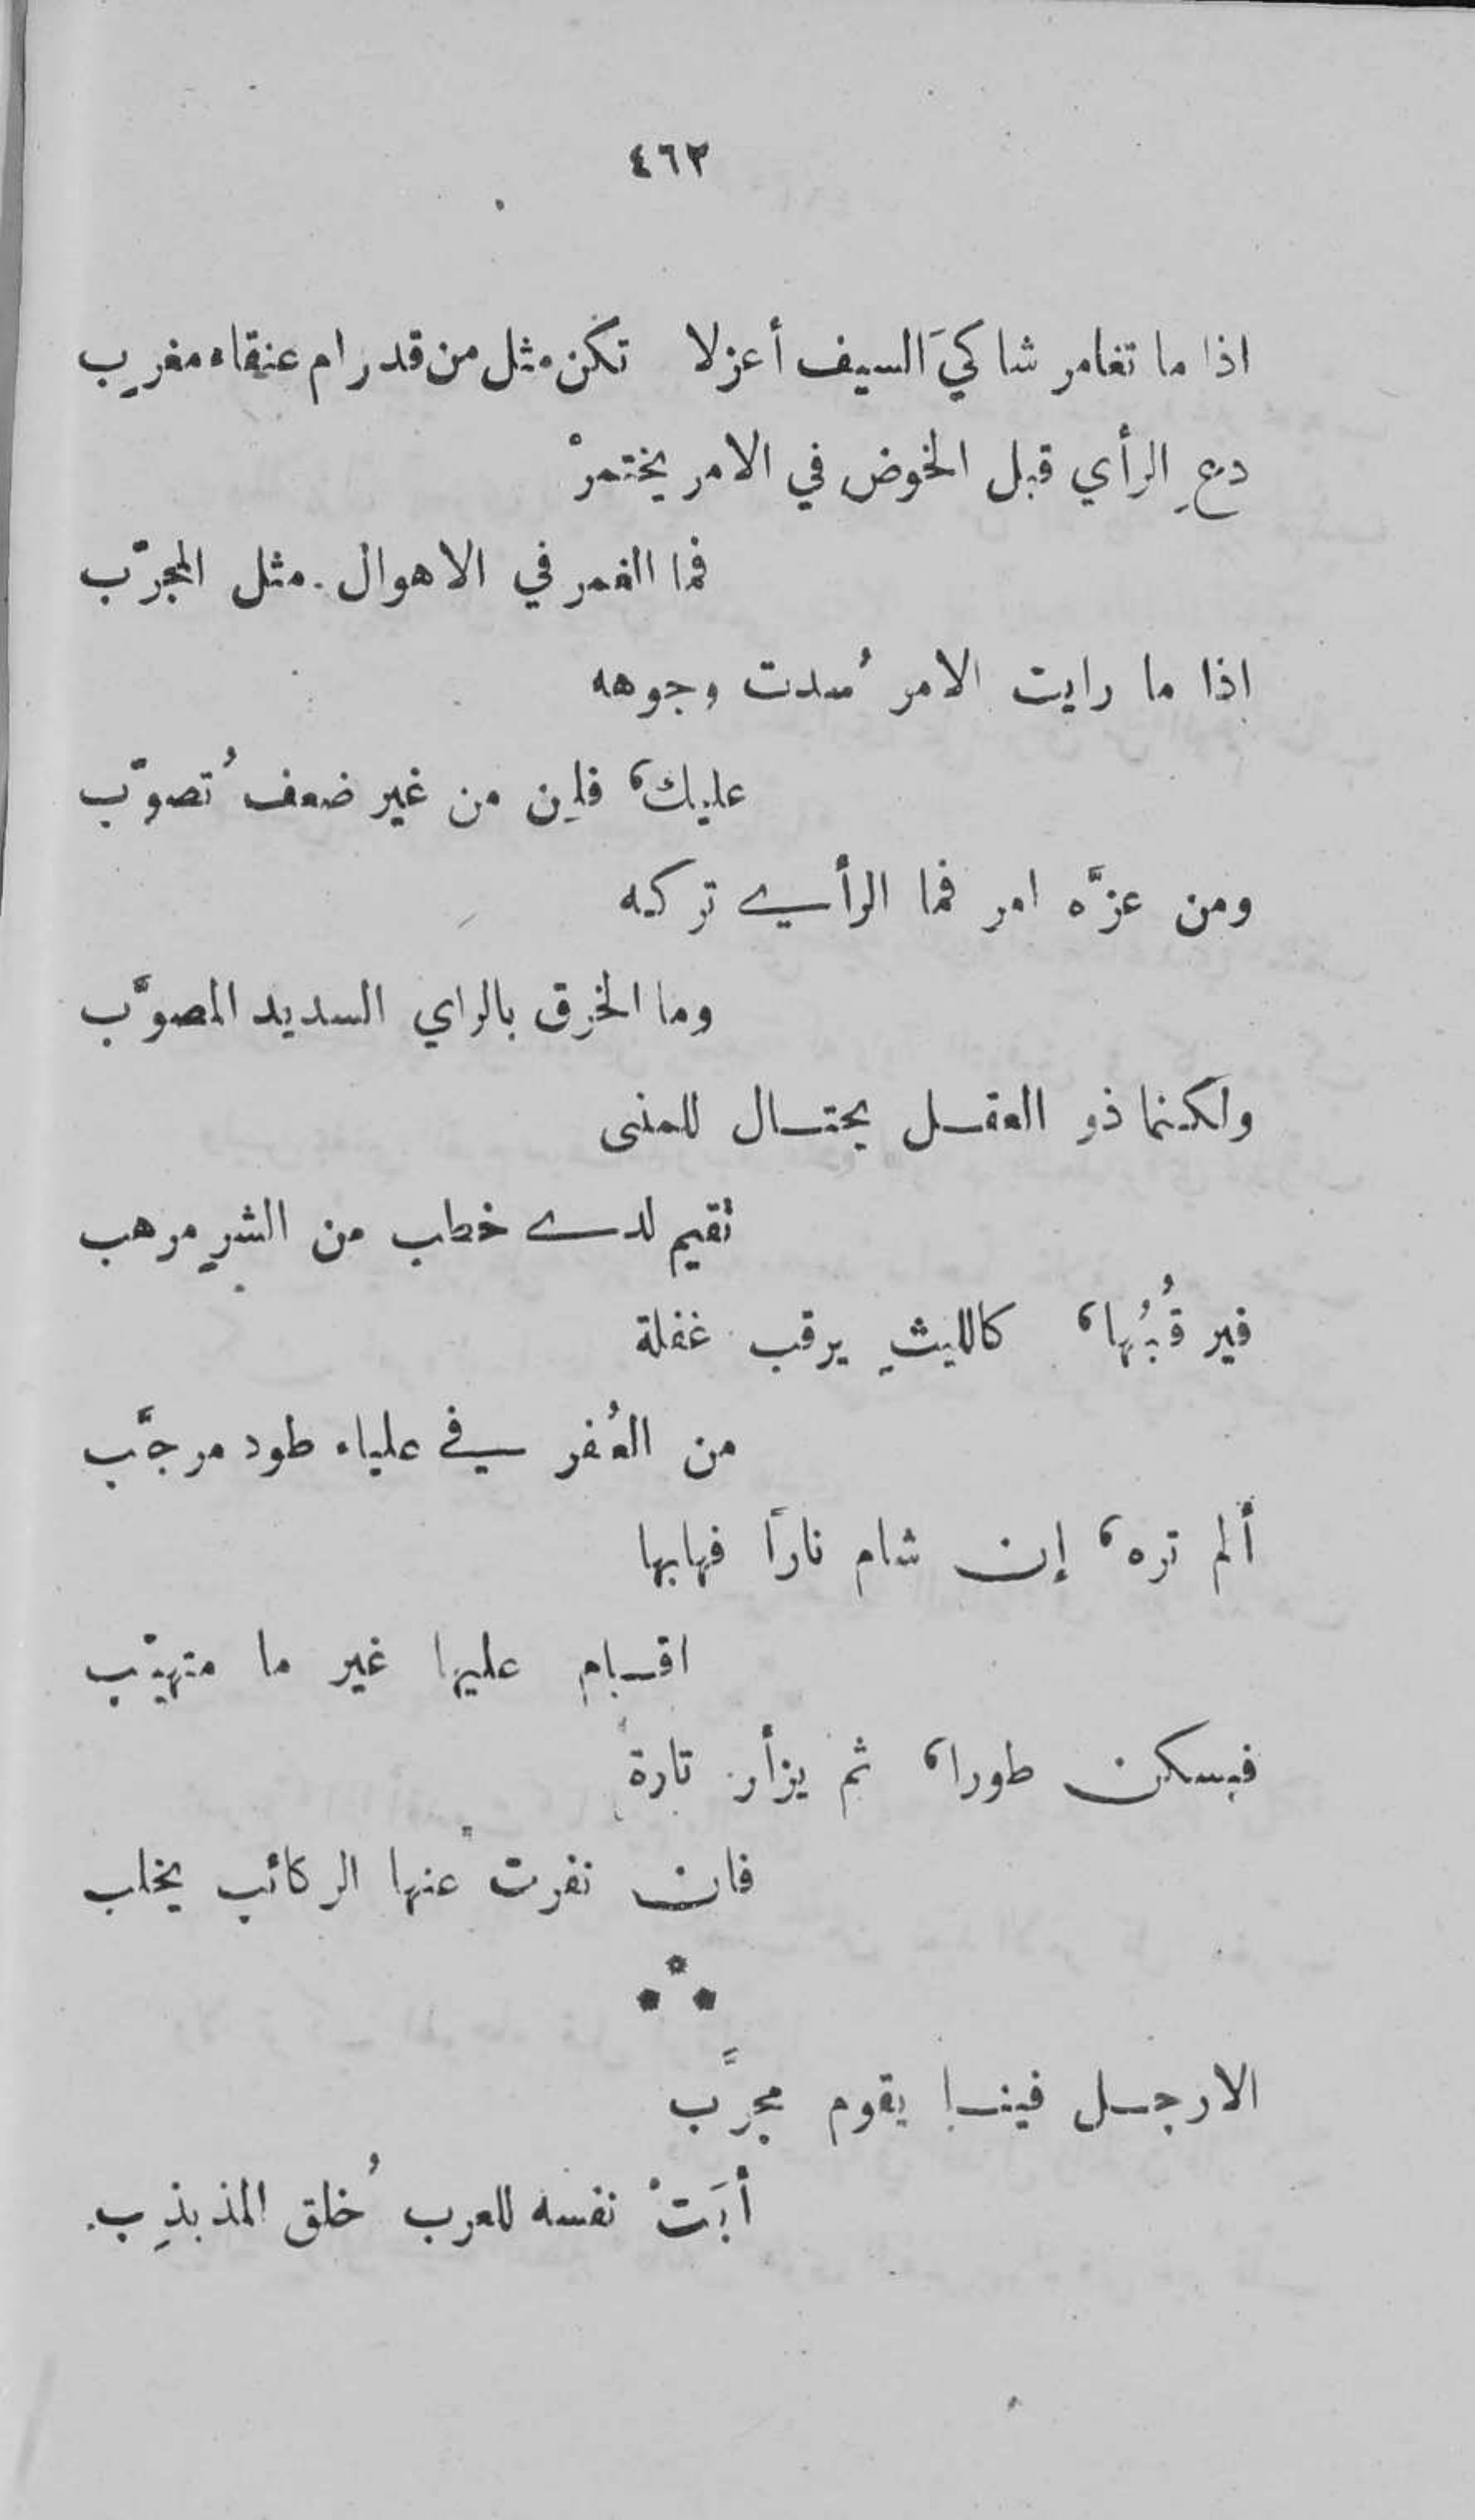 ٤٦٢
اذا ما تغامر شاكيَ السيف أعزلا تكن مثل من قد رام عنقاء مغرِب
دعِ الرأي قبل الخوض في الامر يختمرْ
فما الغمر في الاهوال مثل المجرّب
اذا ما رايت الامر سُدت وجوهه
عليك، فلِن من غير ضعف تُصوّب
ومن عزَّه امر فما الرأي تركه
وما الخرق بالراي السديد المصوَّب
ولكنما ذو العقل يحتال للمنى
تقيم لدى خطب من الشرِ مرهب
فيرقُبُها، كالليثِ يرقب غفلة
من العُفر في علياء طود مرجَّب
ألم تره، إن شام ناراً فهابها
اقام عليها غير ما متهيّب
فيسكن طورا، ثم يزأر تارة
فان نفرت عنها الركائب يخلب
الا رجل فينا يقوم مجرَّب
أبَتْ نفسه للعرب خُلق المذبذِب.